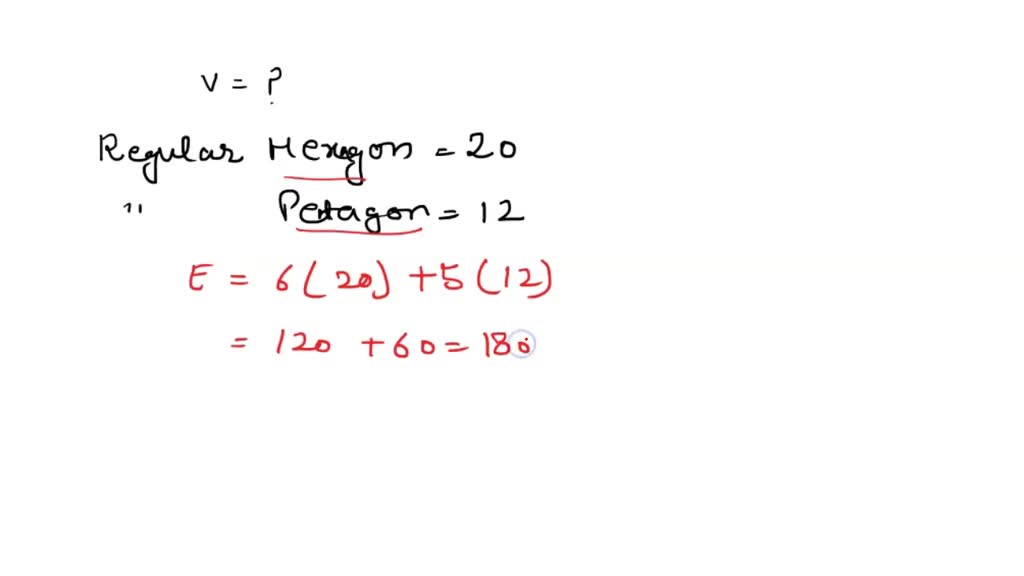 V = ?
Regular Hexagon = 20
" Pentagon = 12
E = 6(20) + 5(12)
= 120 + 60 = 180